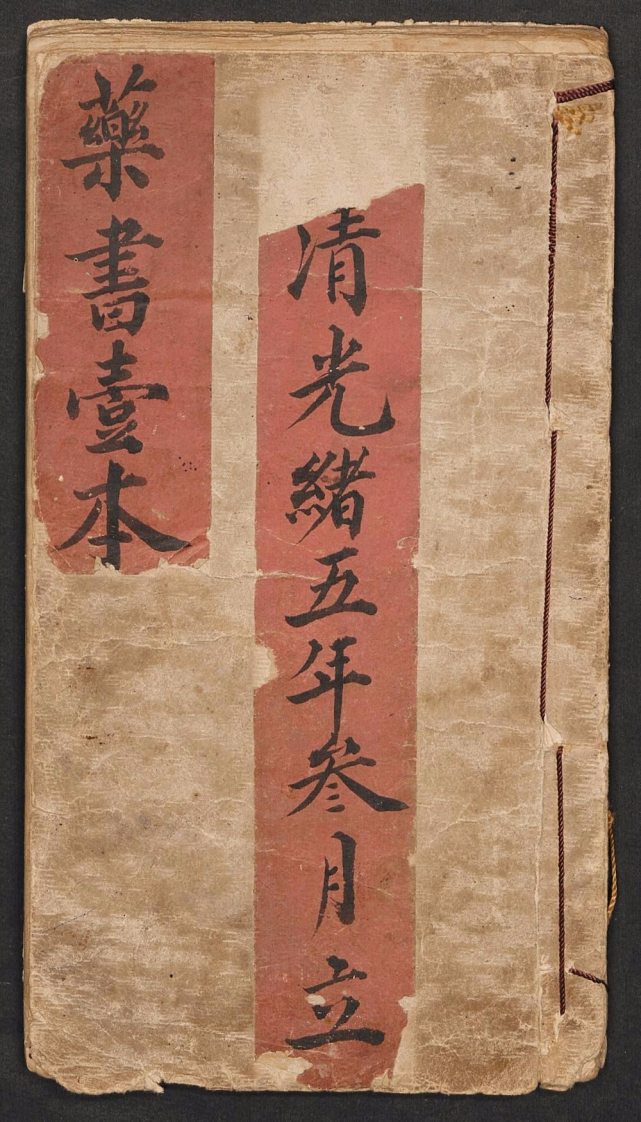 清光緒五年叄月立
藥書壹本